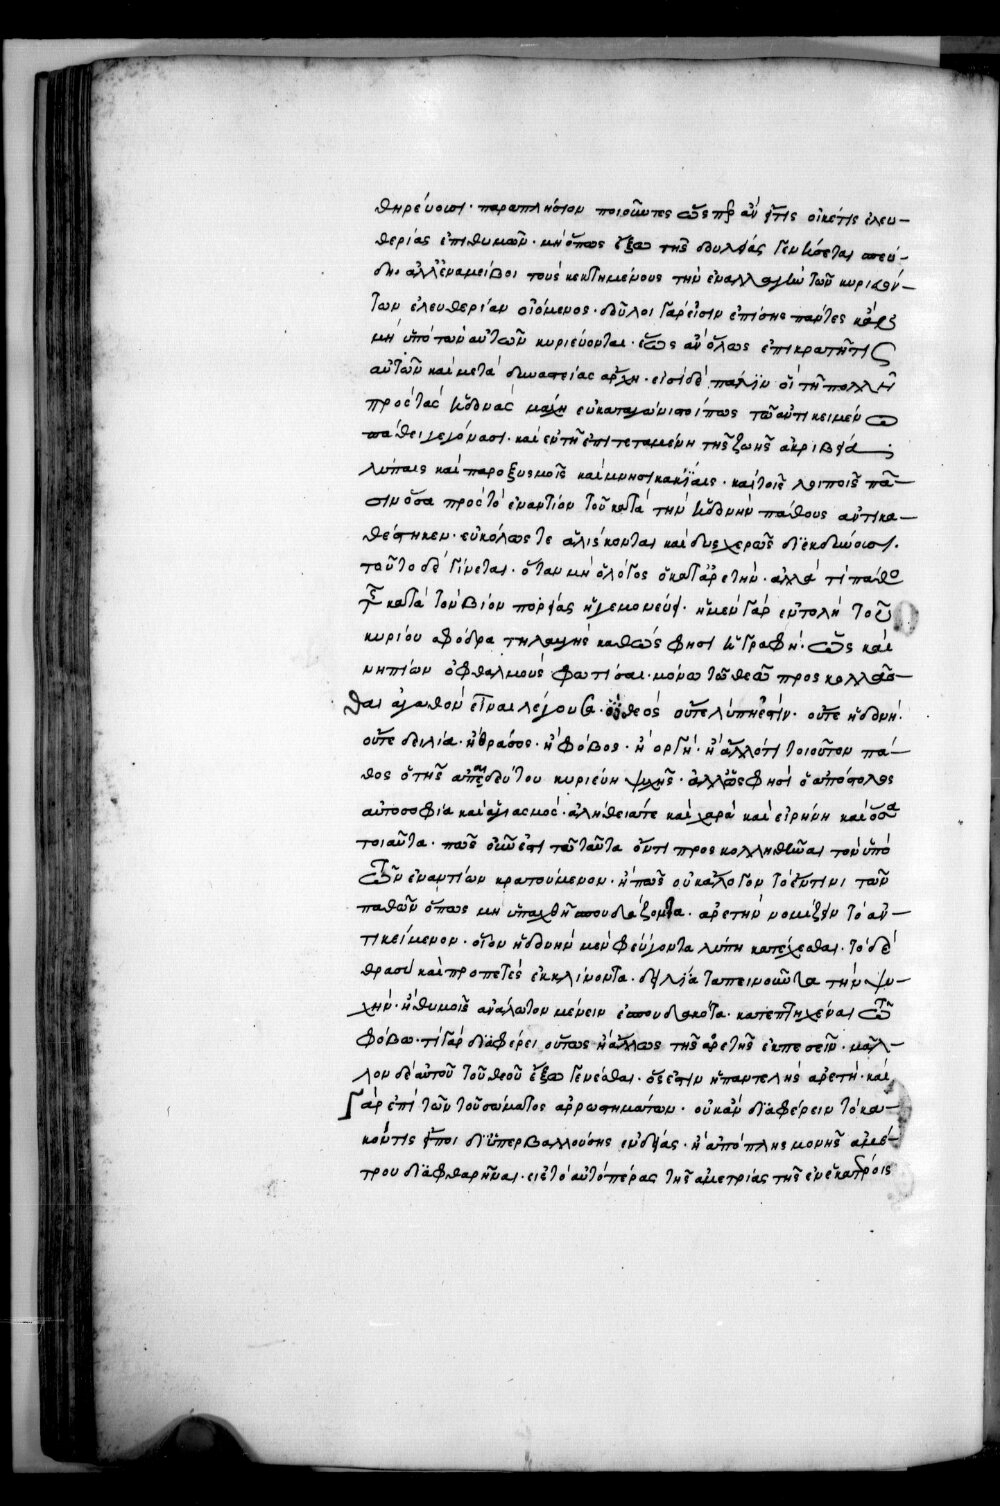 θηρεύουσι· παραπλήσιον ποιοῦντες ὥσπερ ἂν εἴ τις οἰκέτης ἐλευ-
θερίας ἐπιθυμῶν· μὴ ὅπως ἔξω τῆς δουλείας γενήσεται σπεύ-
δει ἀλλ' ἐναμείβοι τοὺς κεκτημένους τὴν ἐναλλαγὴν τῶν κυριευόν-
των ἐλευθερίαν οἰόμενος· δοῦλοι γάρ εἰσιν ἐπίσης πάντες κἂν
μὴ ὑπὸ τῶν αὐτῶν κυριεύονται· ἕως ἂν ὅλως ἐπικρατῇ τις
αὐτῶν καὶ μετὰ δυναστείας ἀρχὴ· εἰσὶ δὲ πάλιν οἳ τῇ πολλῇ
πρὸς τὰς ἡδονὰς μάχῃ εὐκαταγώνιστοί πως τῷ ἀντικειμένῳ
πάθει γεγόνασι· καὶ ἐν τῇ ἐπιτεταμένῃ τῆς ζωῆς ἀκριβείᾳ
λύπαις καὶ παροξυσμοῖς καὶ μνησικακίαις· καὶ τοῖς λοιποῖς πᾶ-
σιν ὅσα πρὸς τὸ ἐναντίον τοῦ κατὰ τὴν ἡδονὴν πάθους ἀντικα-
θέστηκεν· εὐκόλως τε ἁλίσκονται καὶ δυσχερῶς διεκδύουσι·
τοῦτο δὲ γίνεται· ὅταν μὴ ὁ λόγος ὁ κατ' ἀρετὴν· ἀλλά τι πάθος
τῆς κατὰ τὸν βίον πορείας ἡγεμονεύει· ἡ μὲν γὰρ ἐντολὴ τοῦ
κυρίου σφόδρα τηλαυγὴς καθώς φησι ἡ γραφὴ· ὡς καὶ
νηπίων ὀφθαλμοὺς φωτίσαι· μόνῳ τῷ θεῷ προσκολλᾶσ-
θαι ἀγαθὸν εἶναι λέγουσα· ὁ θεὸς οὔτε λύπη ἐστίν· οὔτε ἡδονή·
οὔτε δειλία· ἢ θράσος· ἢ φόβος· ἢ ὀργή· ἢ ἄλλό τι τοιοῦτον πά-
θος ὃ τῆς ἀπαιδεύτου κυριεύῃ ψυχῆς· ἀλλ' ὥς φησι ὁ ἀπόστολος
αὐτοσοφία καὶ ἁγιασμός· ἀλήθειά τε καὶ χαρὰ καὶ εἰρήνη καὶ ὅσα
τοιαῦτα· πῶς οὖν ἔστι τῷ ταῦτα ὄντι προσκολληθῆναι τὸν ὑπὸ
τῶν ἐναντίων κρατούμενον· ἢ πῶς οὐκ ἄλογον τὸ ἑνί τινι τῶν
παθῶν ὅπως μὴ ὑπαχθῇ σπουδάζοντα· ἀρετὴν νομίζειν τὸ ἀν-
τικείμενον· οἷον ἡδονὴν μὲν φεύγοντα λύπῃ κατέχεσθαι· τὸ δὲ
θρασὺ καὶ προπετὲς ἐκκλίνοντα· δειλίᾳ ταπεινοῦντα τὴν ψυ-
χήν· ἢ θυμοῖς ἀνάλωτον μένειν ἐσπουδακότα· κατεπτηχέναι τῷ
φόβῳ· τί γὰρ διαφέρει οὕτως ἢ ἄλλως τῆς ἀρετῆς ἐκπεσεῖν· μᾶλ-
λον δὲ αὐτοῦ τοῦ θεοῦ ἔξω γενέσθαι· ὅς ἐστιν ἡ παντελὴς ἀρετή· καὶ
γὰρ ἐπὶ τῶν τοῦ σώματος ἀρρωστημάτων· οὐκ ἂν διαφέρειν τὸ κα-
κόν τις εἴποι δι' ὑπερβαλλούσης ἐνδείας· ἢ ἀπὸ πλησμονῆς ἀμέ-
τρου διαφθαρῆναι· εἰς τὸ αὐτὸ πέρας τῆς ἀμετρίας τῆς ἐν ἑκατέροις